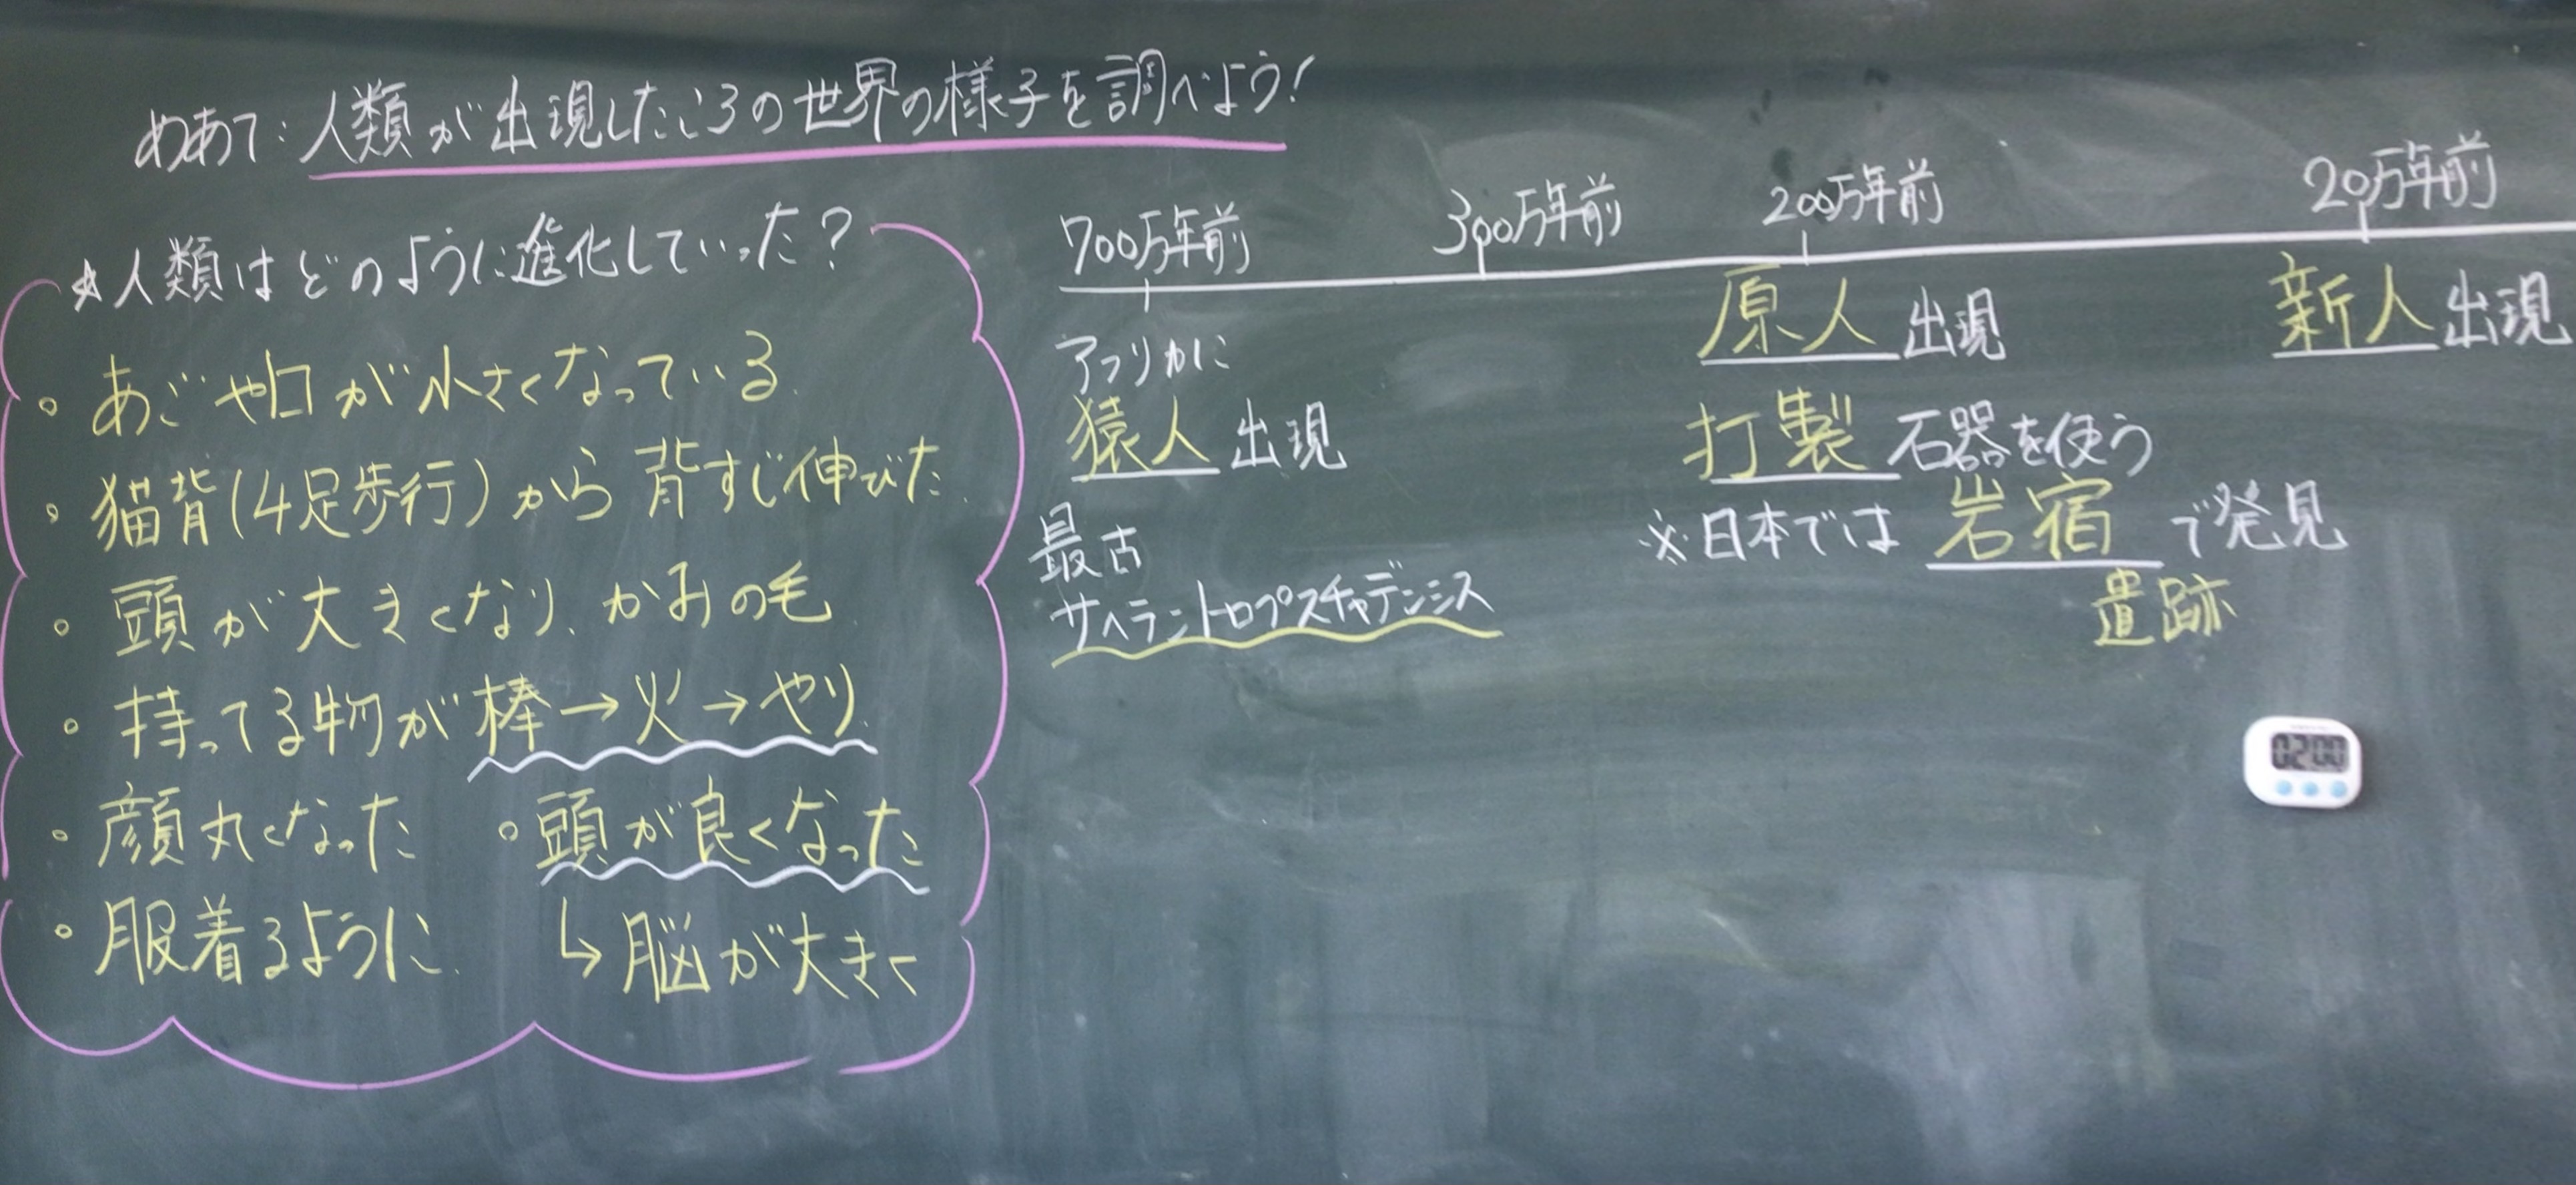 めあて:人類が出現したころの世界の様子を調べよう!
★人類はどのように進化していった?
・あごや口が小さくなっている
・猫背(4足歩行)から背すじ伸びた
・頭が大きくなり、かみの毛
・持ってる物が棒→火→やり
・顔丸くなった
・服着るように
・頭が良くなった
↳脳が大きく
700万年前 300万年前 200万年前 20万年前
アフリカに
猿人出現
最古
サヘラントロプスチャデンシス
原人出現
打製石器を使う
※日本では岩宿で発見
遺跡
新人出現
02:00